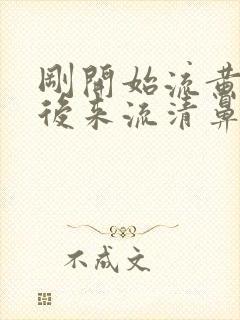 剛開始流黃
後來流清鼻
不成文